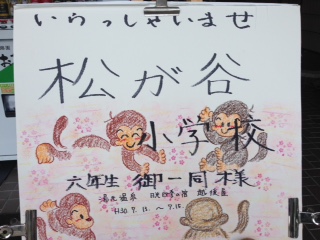 いらっしゃいませ
松が谷
小学校
六年生 御一同様
湯元温泉
H30.9.13.～9.15.